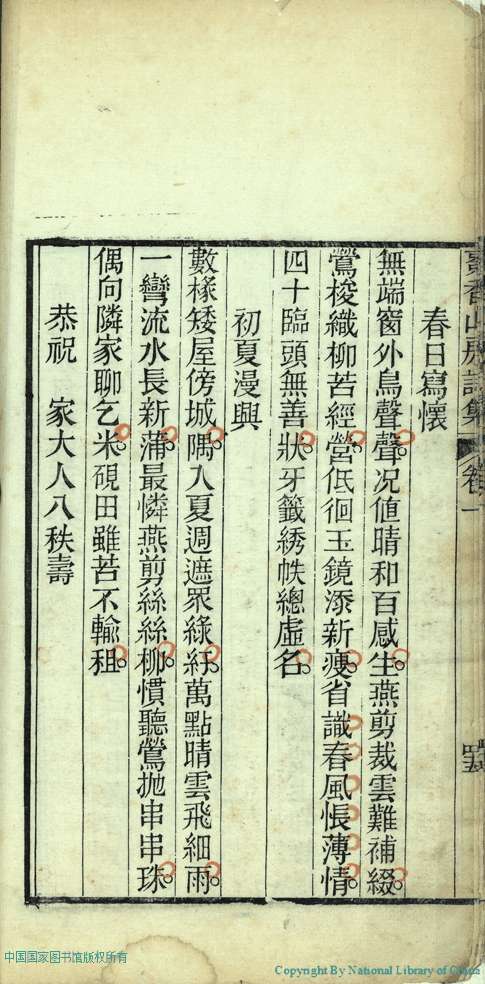 香山房詩集 卷一
春日寫懷
無端窗外鳥聲聲。况值晴和百感生。燕剪裁雲難補綴。
鶯梭織柳苦經營。低徊玉鏡添新瘦。省識春風悵薄情。
四十臨頭無善狀。牙籤綉帙總虛名。
初夏漫興
數椽矮屋傍城隅。入夏週遮眾綠紆。萬點晴雲飛細雨。
一彎流水長新蒲。最憐燕剪絲絲柳。慣聽鶯拋串串珠。
偶向隣家聊乞米。硯田雖苦不輸租。
恭祝 家大人八秩壽
中国国家图书馆版权所有
Copyright By National Library of China